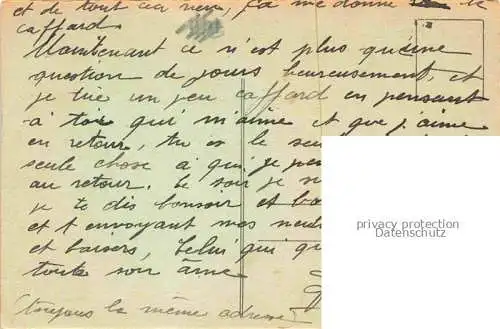 et de tout ça rien, ça me donne le
caffard
Maintenant ce n'est plus qu'une
question de jours heureusement, et
je tue un peu caffard en pensant
à toi qui m'aime et que j'aime
en retour, tu es le seu
seule chose à qui je pen
au retour. Le soir je
je te dis bonsoir et bo
et t envoyant mes
et baisers, Celui qui
toute son âme
(toujours la même adresse)
privacy protection
Datenschutz